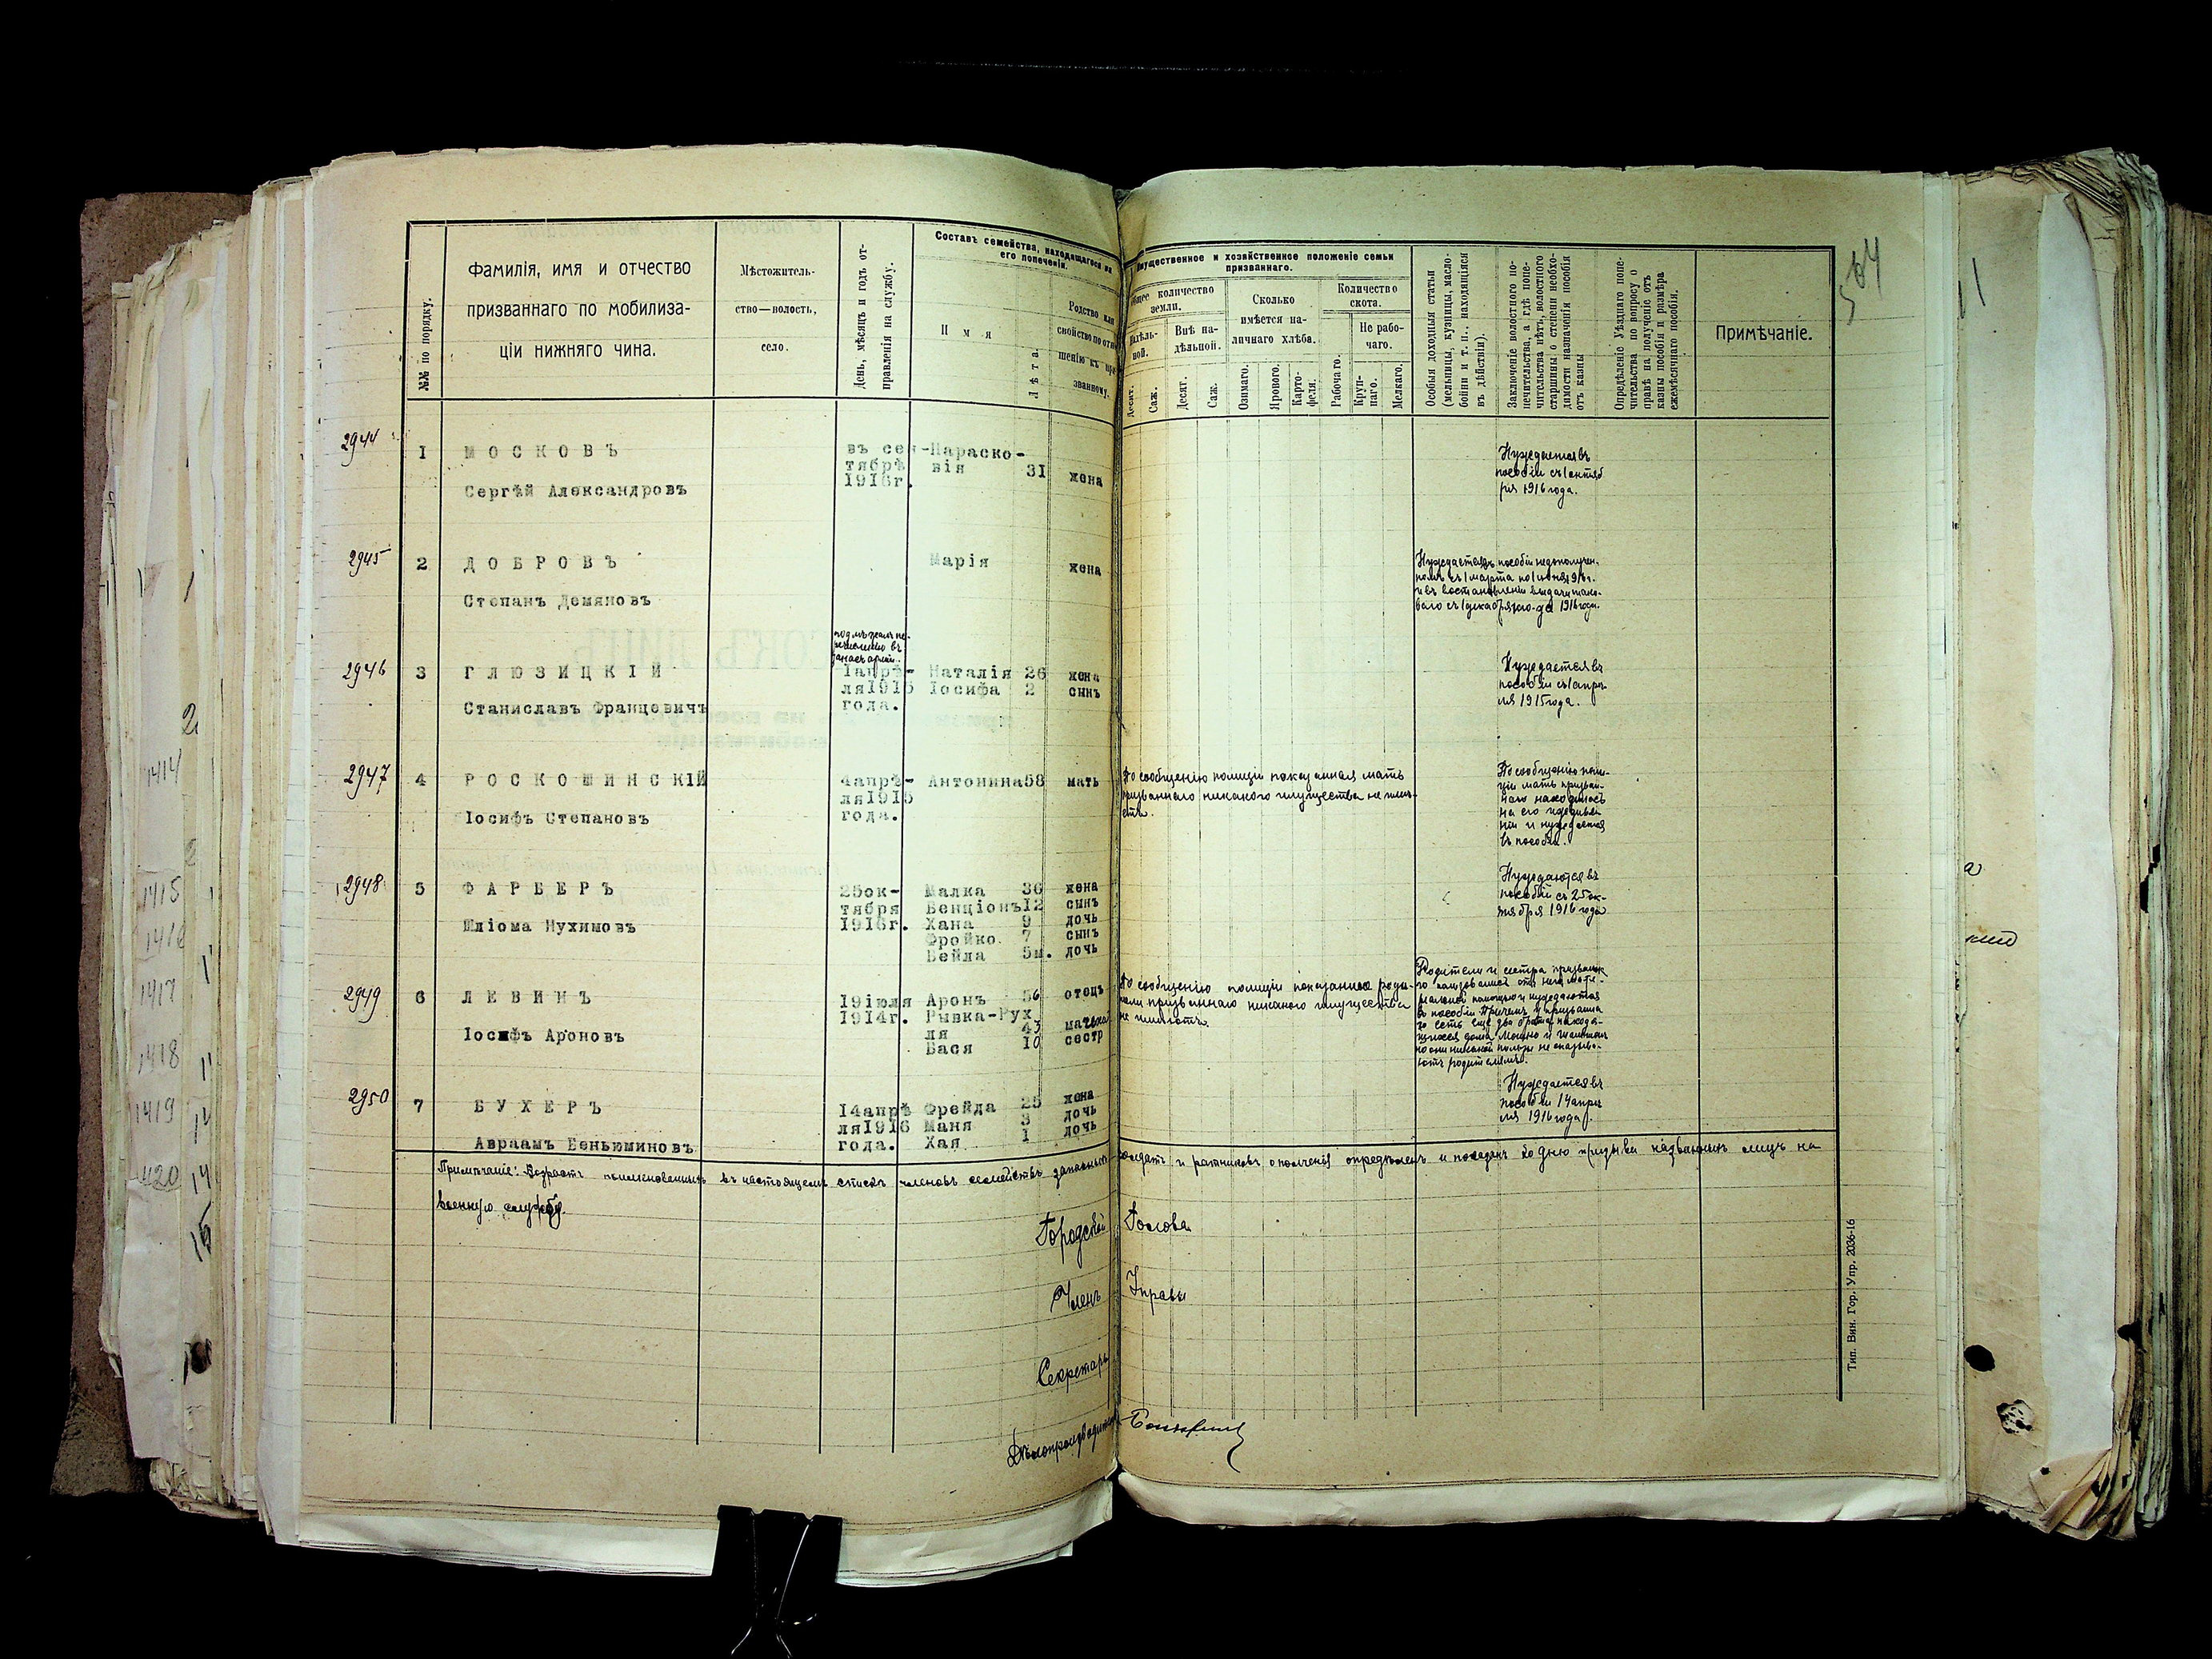 №№ по порядку.
Фамилія, имя и отчество
призваннаго по мобилиза-
ціи нижняго чина.
Мѣстожитель-
ство—волость,
село.
День, мѣсяцъ и годъ от-
правленія на службу.
Составъ семейства, находящагося на
его попеченіи.
Имя
Лѣта.
Родство или
свойство по отно-
шенію къ при-
званному.
Имущественное и хозяйственное положеніе семьи
призваннаго.
Общее количество
земли.
Надѣль-
ной.
Внѣ на-
дѣльной.
Десят.
Саж.
Десят.
Саж.
Сколько
имѣется на-
личнаго хлѣба.
Озимаго.
Ярового.
Карто-
феля.
Количество
скота.
Рабочаго.
Не рабо-
чаго.
Круп-
наго.
Мелкаго.
Особыя доходныя статьи
(мельницы, кузницы, масло-
бойни и т. п., находящіяся
въ дѣйствіи).
Заключеніе волостного по-
печительства, а гдѣ попе-
чительства нѣтъ, волостного
старшины о степени необхо-
димости назначенія пособія
отъ казны
Опредѣленіе Уѣзднаго попе-
чительства по вопросу о
правѣ на полученіе отъ
казны пособія и размѣра
ежемѣсячнаго пособія.
Примѣчаніе.
2944
1
МОСКОВЪ
Сергѣй Александровъ
въ сен-
тябрѣ
1916г.
Параско-
вія 31 жена
Нуждается въ
пособіи съ 1 октяб
ря 1916 года.
2945
2
ДОБРОВЪ
Степанъ Демяновъ
Марія жена
Нуждается въ пособіи недополучен-
номъ съ 1 марта по 1 іюня 916 г.
и въ востановленіи выдачи тако-
вого съ 1 декабря 1916 года.
2946
3
ГЛЮЗИЦКІЙ
Станиславъ Францовичъ
1апрѣ-
ля1915
года.
Наталія 26 жена
Іосифа 2 сынъ
Нуждается въ
пособіи съ 1 апрѣ-
ля 1915 года.
2947
4
РОСКОШИНСКІЙ
Іосифъ Степановъ
4апрѣ-
ля1915
года.
Антонина58 мать
По сообщенію полиціи показанная мать
призваннаго никакого имущества не имѣ-
етъ.
По сообщенію поли-
ціи мать призван-
наго находилась
на его иждивені
ніи и нуждается
въ пособіи.
2948
5
ФАРБЕРЪ
Шліома Нухимовъ
25ок-
тября
1916г.
Малка 36 жена
Бенціонъ12 сынъ
Хана 9 дочь
Фройко. 7 сынъ
Бейла 5м. дочь
Нуждаются въ
пособіи съ 25 ок-
тября 1916 года
2949
6
ЛЕВИНЪ
Іосифъ Ароновъ
19іюля
1914г.
Аронъ 56 отецъ
Рывка-Рух
ля 43
Бася 10 сестр
По сообщенію полиціи показанные роди-
тели призваннаго никакого имущества
не имѣютъ.
Родители и сестра призванна
го пользовались отъ него мате-
ріальной помощью и нуждаются
въ пособіи. Причемъ у призванна
го есть еще два брата находя-
щихся дома
но они никакой пользы не оказыва-
ютъ родителямъ.
2950
7
БУХЕРЪ
Авраамъ Беньюминовъ
14апрѣ
ля1916
года.
Фрейда 25 жена
Маня 3 дочь
Хая 1 дочь
Нуждается въ
пособіи 14 апрѣ
ля 1916 года.
Примѣчаніе: Возрастъ поименованныхъ въ настоящемъ спискѣ членовъ семействъ запасныхъ солдатъ и ратниковъ ополченія опредѣленъ и показанъ ко дню призыва названныхъ лицъ на
военную службу.
Городской Голова
Членъ Управы
Секретарь
Дѣлопроизводитель
Тип. Вин. Гор. Упр. 2036-16
1414
1415
1416
1417
1418
1419
1420